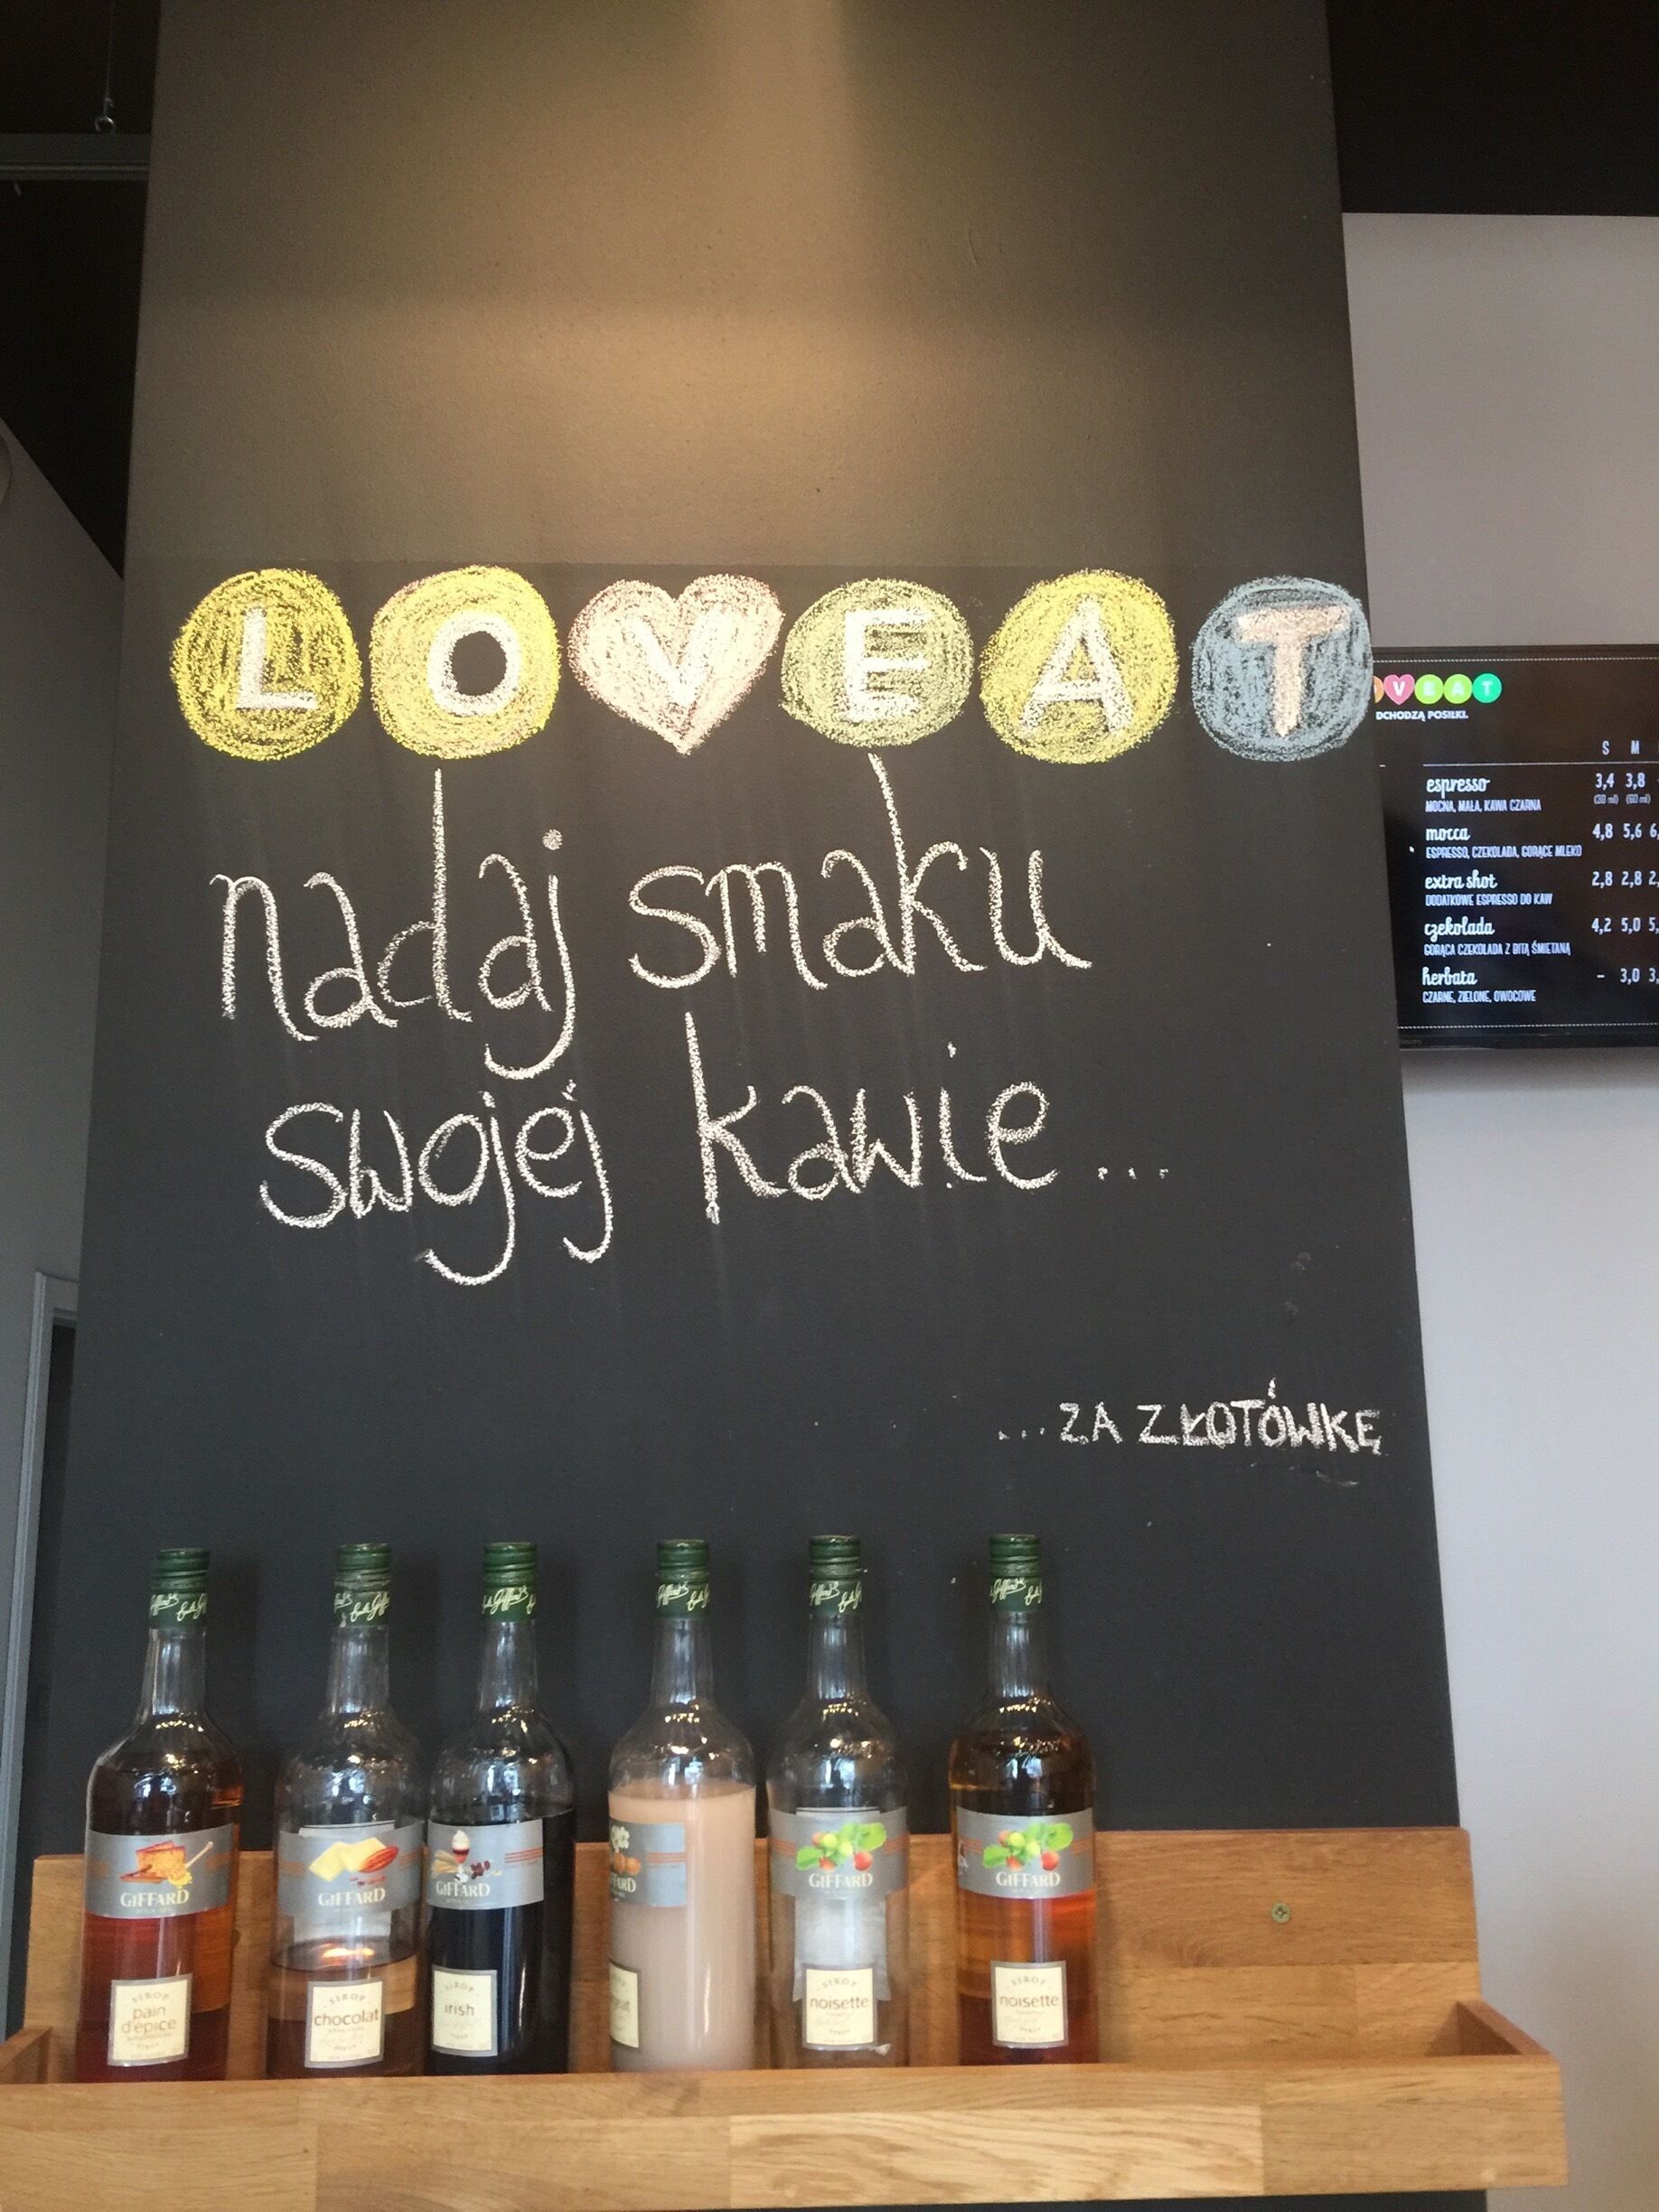 LOVEAT
nadaj smaku
swojej kawie...
...ZA ZŁOTÓWKĘ
VEAT
DCHODZĄ POSIŁKI.
S M
espresso 3,4 3,8
MOCNA, MAŁA, KAWA CZARNA (30 ml) (60 ml)
mocca 4,8 5,6 6,
ESPRESSO, CZEKOLADA, GORĄCE MLEKO
extra shot 2,8 2,8 2,
DODATKOWE ESPRESSO DO KAW
czekolada 4,2 5,0 5,
GORĄCA CZEKOLADA Z BITĄ ŚMIETANĄ
herbata - 3,0 3,
CZARNE, ZIELONE, OWOCOWE
GIFFARD
SIROP
pain
d'épice
GIFFARD
SIROP
chocolat
GIFFARD
SIROP
irish
GIFFARD
SIROP
noisette
GIFFARD
SIROP
noisette